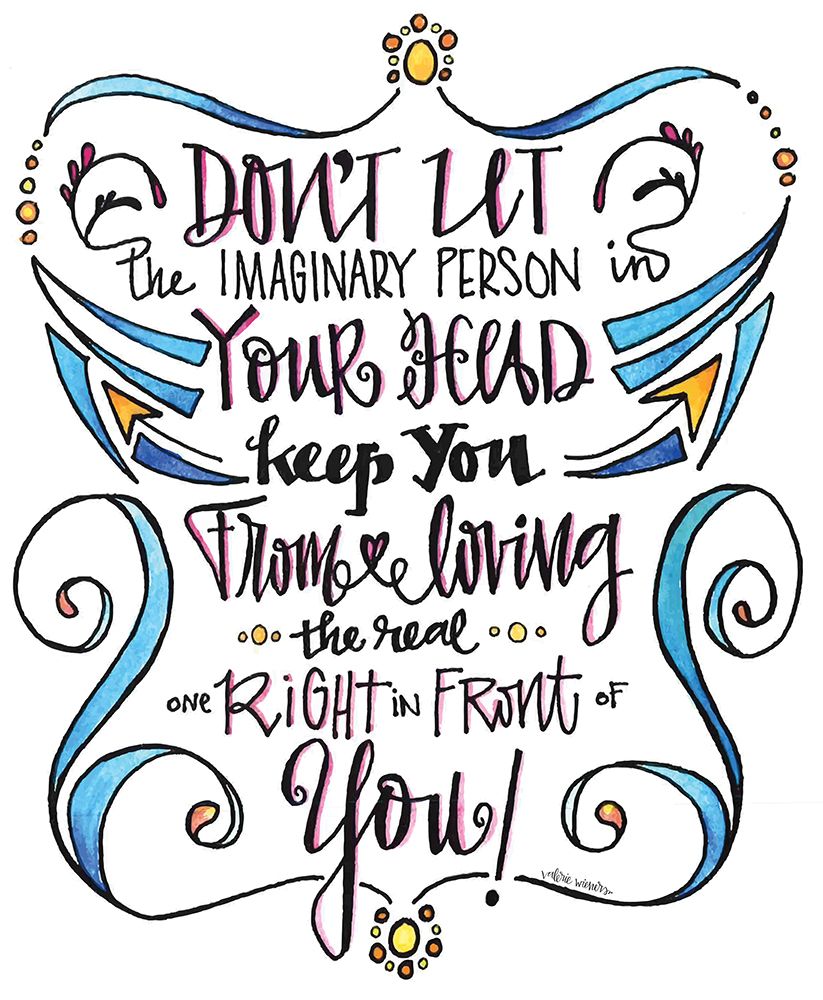 DON'T LET
the IMAGINARY PERSON in
YOUR HEAD
keep You
From loving
the real
ONE RiGHT iN FRONT OF
You!
valerie wieners